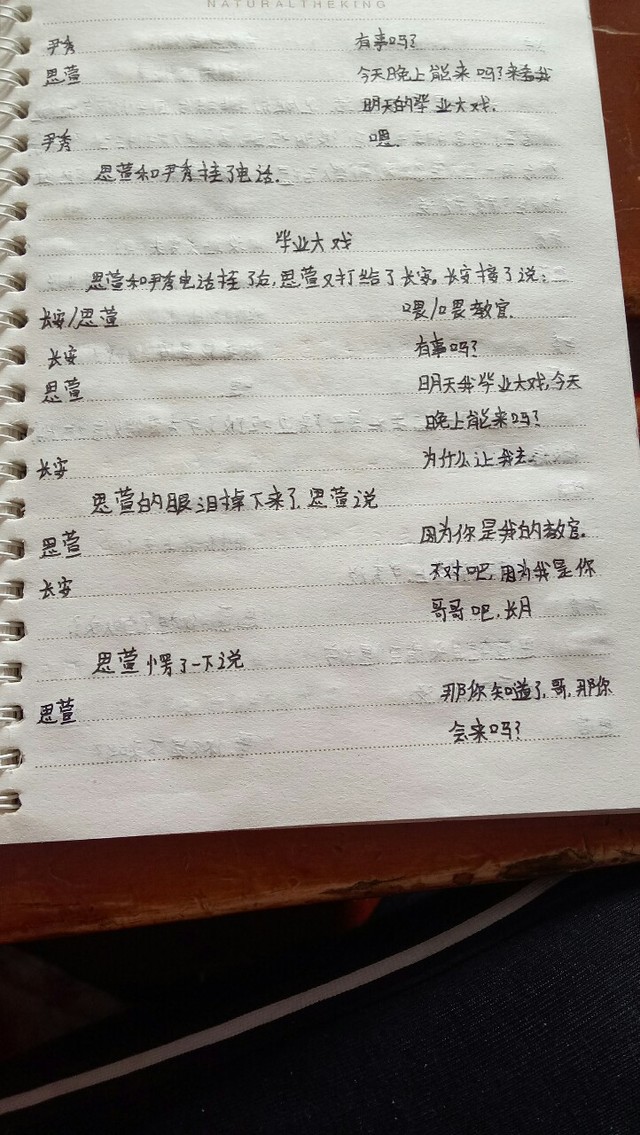 NATURALTHEKING
尹秀 有事吗?
思萱 今天晚上能来吗?来看我
明天的毕业大戏.
尹秀 嗯.
思萱和尹秀挂了电话.
毕业大戏
思萱和尹秀电话挂了后,思萱又打给了长安。长安接了说:
长安/思萱 喂/喂教官.
长安 有事吗?
思萱 明天我毕业大戏,今天
晚上能来吗?
长安 为什么让我去.
思萱的眼泪掉下来了.思萱说
思萱 因为你是我的教官.
长安 不对吧,因为我是你
哥哥吧,长月
思萱愣了一下说
思萱 那你知道了,哥,那你
会来吗?